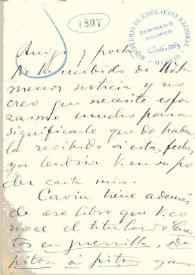 1807
MINISTERIO DE EDUCACION NACIONAL
SEMINARIO
ARCHIVO
Amigo y poeta:
No he recibido de
menor noticia y no
creo que necesite esfor
zarme mucho para
significarle que de haber
la recibido a esta fecha,
ya tendría V. en su po
der carta mía.
Cavia tiene además
de ese libro que V. co
noce el titulado
en guerrilla, de
pitón a pitón y